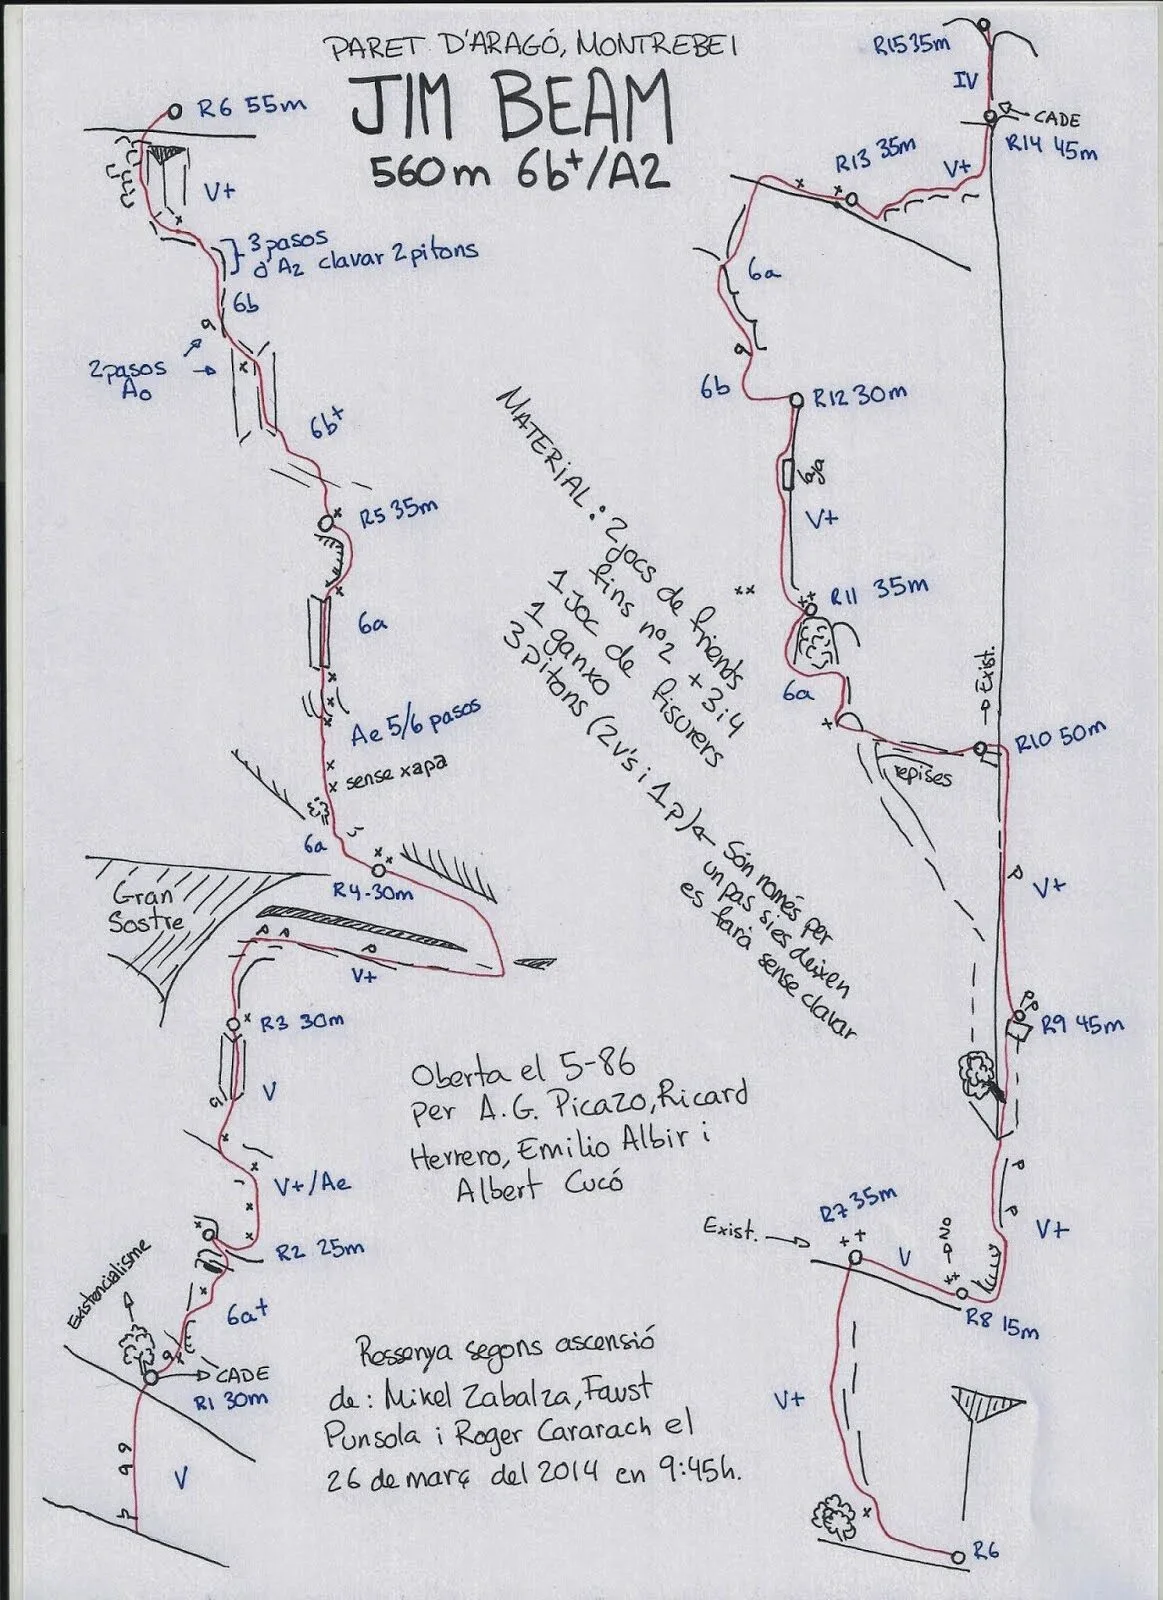 PARET D'ARAGÓ, MONTREBEI
JIM BEAM
560m 6b+/A2
R6 55m
V+
3 pasos
d'A2 clavar 2 pitons
6b
2 pasos
A0
6b+
R5 35m
6a
Ae 5/6 pasos
sense xapa
6a
R4-30m
Gran
Sostre
V+
R3 30m
V
V+/Ae
R2 25m
Existencialisme
6a+
CADE
R1 30m
V
MATERIAL: 2 jocs de friends
fins nº2 + 3 i 4
1 joc de fisurers
1 ganxo
3 pitons (2 v's i 1 p) ← Són només per
un pas si es deixen
es farà sense clavar
Oberta el 5-86
per A.G. Picazo, Ricard
Herrero, Emilio Albir i
Albert Cucó
Ressenya segons ascensió
de: Mikel Zabalza, Faust
Punsola i Roger Cararach el
26 de març del 2014 en 9:45h.
R15 35m
IV
CADE
R14 45m
R13 35m
V+
6a
6b
R12 30m
laja
V+
R11 35m
6a
Exist.
R10 50m
repises
V+
R9 45m
R7 35m
Exist.
V
No
V+
R8 15m
V+
R6